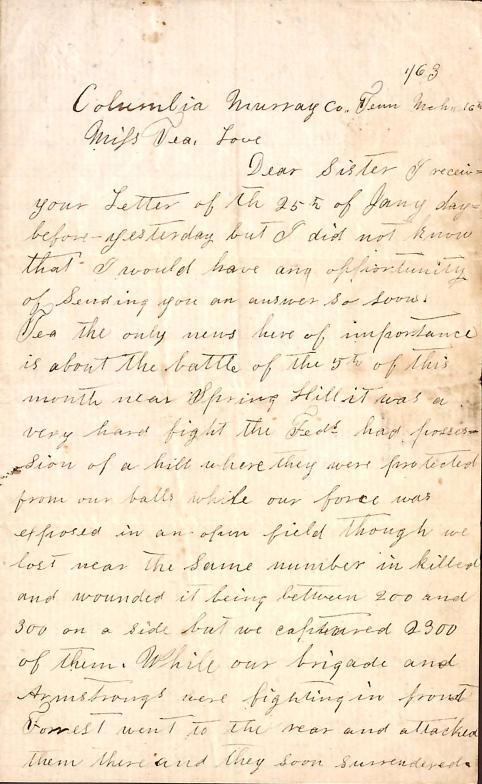 /63
Columbia Murray Co. Tenn Mch 16th
Miss Tea. Love
Dear Sister I receiv=
your Letter of th 25th of Jany day=
before-yesterday but I did not know
that I would have any opportunity
of sending you an answer so soon.
Tea the only news here of importance
is about the battle of the 5th of this
month near Spring Hill it was a
very hard fight the Feds had posses=
sion of a hill where they were protected
from our balls while our force was
exposed in an open field though we
lost near the same number in killed
and wounded it being between 200 and
300 on a side but we captured 2300
of them. While our brigade and
Armstrongs were fighting in front
Forrest went to the rear and attacked
them there and they soon surrendered.